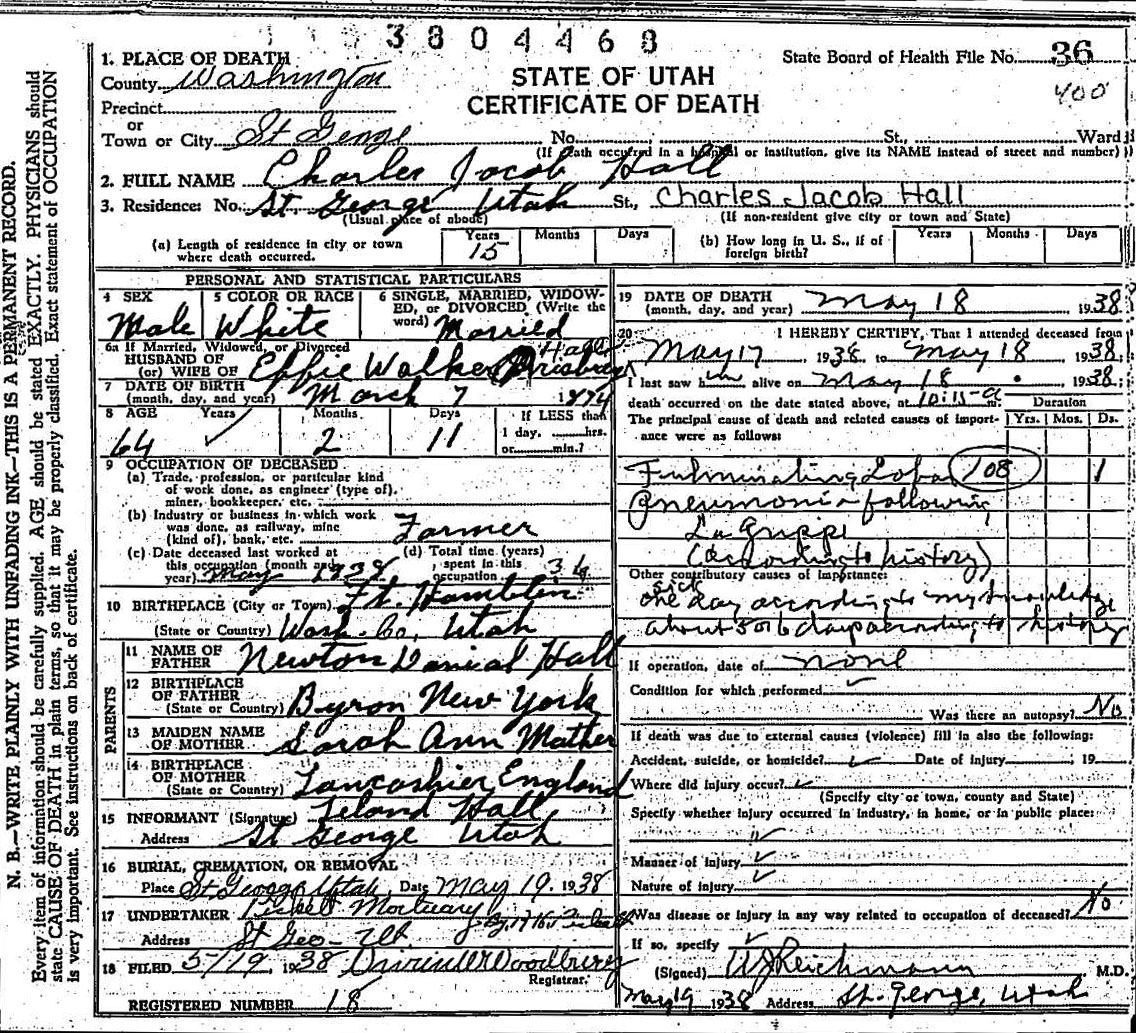 3804468
1. PLACE OF DEATH
State Board of Health File No. 36
County Washington
STATE OF UTAH
400
Precinct
CERTIFICATE OF DEATH
or
Town or City St George No. St., Ward
(If death occurred in a hospital or institution, give its NAME instead of street and number)
2. FULL NAME Charles Jacob Hall
3. Residence: No. St. George Utah St., Charles Jacob Hall
(Usual place of abode) (If non-resident give city or town and State)
(a) Length of residence in city or town where death occurred. Years 15 Months Days
(b) How long in U. S., if of foreign birth? Years Months Days
PERSONAL AND STATISTICAL PARTICULARS
4 SEX Male
5 COLOR OR RACE White
6 SINGLE, MARRIED, WIDOWED, or DIVORCED (Write the word) Married
6a If Married, Widowed, or Divorced
HUSBAND OF
(or) WIFE OF Effie Walker Hall
7 DATE OF BIRTH
(month, day, and year) March 7 1874
8 AGE Years 64 Months 2 Days 11 If LESS than
1 day, hrs.
or min.?
9 OCCUPATION OF DECEASED
(a) Trade, profession, or particular kind
of work done, as engineer (type of),
miner, bookkeeper, etc.
(b) Industry or business in which work
was done, as railway, mine
(kind of), bank, etc. Farmer
(c) Date deceased last worked at
this occupation (month and
year) May 1938
(d) Total time (years)
spent in this
occupation 34
10 BIRTHPLACE (City or Town) Ft. Hamblin
(State or Country) Wash. Co, Utah
PARENTS
11 NAME OF
FATHER Newton Danial Hall
12 BIRTHPLACE
OF FATHER
(State or Country) Byron New York
13 MAIDEN NAME
OF MOTHER Sarah Ann Mather
14 BIRTHPLACE
OF MOTHER
(State or Country) Lancashier England
15 INFORMANT (Signature) Leland Hall
Address St George Utah
16 BURIAL, CREMATION, OR REMOVAL
Place St George Utah Date May 19, 1938
17 UNDERTAKER Pickett Mortuary
Address St Geo - Ut
18 FILED 5/19, 1938 Woodbury
Registrar.
REGISTERED NUMBER 18
19 DATE OF DEATH
(month, day, and year) May 18 1938
20 I HEREBY CERTIFY, That I attended deceased from
May 17, 1938 to May 18 1938
I last saw him alive on May 18 1938
death occurred on the date stated above, at 10:15 a m.
Duration
The principal cause of death and related causes of importance were as follows: Yrs. Mos. Ds.
Fulminating Lobar 108 1
pneumonia following
La Grippe
(according to history)
Other contributory causes of importance:
sick
one day according to my knowledge
about 5 or 6 days according to history
If operation, date of none
Condition for which performed
Was there an autopsy? No
If death was due to external causes (violence) fill in also the following:
Accident, suicide, or homicide? Date of injury ; 19
Where did injury occur?
(Specify city or town, county and State)
Specify whether injury occurred in industry, in home, or in public place:
Manner of injury
Nature of injury
Was disease or injury in any way related to occupation of deceased? No
If so, specify
(Signed) Reichmann M.D.
May 19 1938 Address St. George, Utah
N. B.—WRITE PLAINLY WITH UNFADING INK—THIS IS A PERMANENT RECORD.
Every item of information should be carefully supplied. AGE should be stated EXACTLY. PHYSICIANS should
state CAUSE OF DEATH in plain terms, so that it may be properly classified. Exact statement of OCCUPATION
is very important. See instructions on back of certificate.